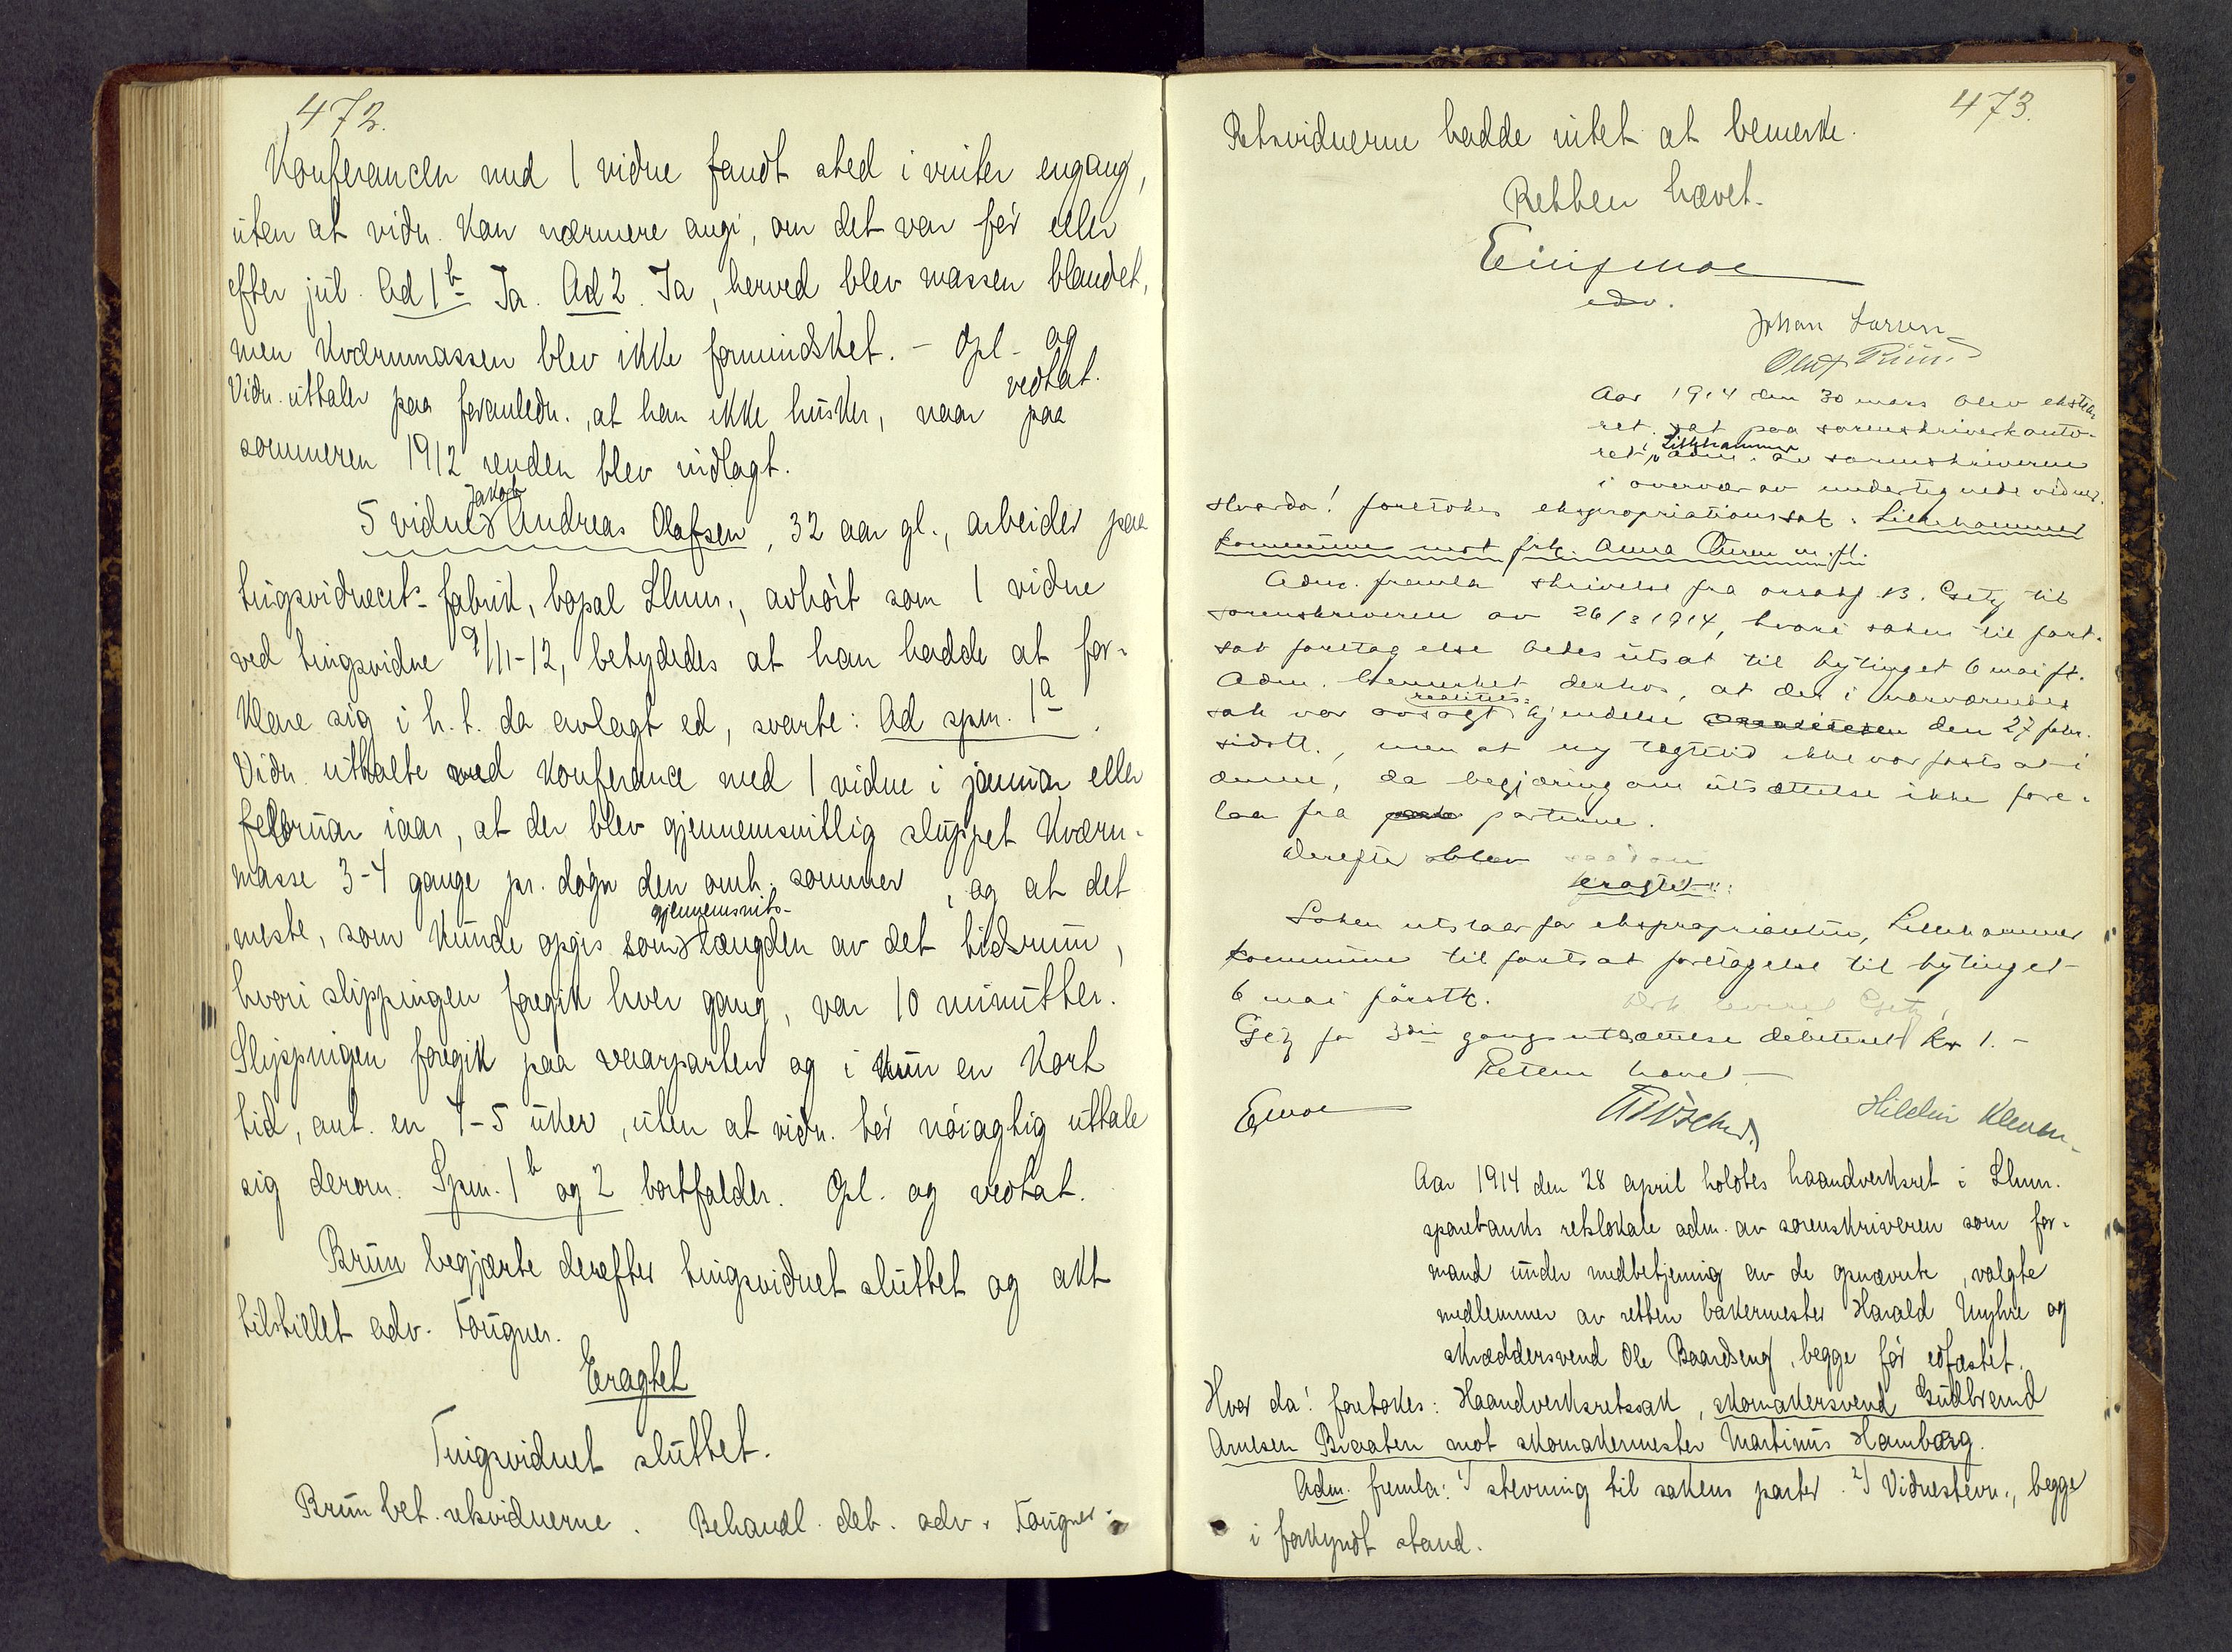 472.
Konferancen med 1 vidne fandt sted i vinter engang,
uten at vidn. kan nærmere angi, om det var før eller
efter jul. Ad 1 b Ja. Ad 2. Ja, herved blev massen blandet,
men kværnmassen blev ikke formindsket. - Opl. og
vedtat.
Vidn. uttaler paa foranledn., at han ikke husker, naar paa
sommeren 1912 renden blev nidlagt.
5 vidne Jakob Andreas Olafsen, 32 aar gl., arbeider paa
tingsvidnets fabrik, bopæl Lhmr., avhørt som 1 vidne
ved tingsvidne 9/11-12, betydedes at han hadde at for-
klare sig i h. t. da avlagt ed, svarte: Ad spm. 1 a.
Vidn. uttalte ved konferance med 1 vidne i januar eller
februar iaar, at der blev gjennemsnitlig sluppet kværn-
masse 3-4 gange pr. døgn den omh. sommer, og at det
meste, som kunde opgis som gjennemsnits- længden av det tidsrum,
hvori slippingen foregik hver gang, var 10 minutter.
Slippingen foregik paa vaarparten og i kun en kort
tid, ant. en 4-5 uker, uten at vidn. tør nøiagtig uttale
sig derom. Spm. 1 b og 2 bortfalder. Opl. og vedtat.
Brun begjærte derefter tingsvidnet sluttet og akt
tilstillet adv. Fougner.
Eragtet
Tingsvidnet sluttet.
Brun bet. retsvidnerne. Behandl. deb. adv. Fougner.
473.
Retsvidnerne hadde intet at bemerke.
Retten hævet.
edv.
Johan Larsen
Aar 1914 den 30 mars blev ekstra
ret sat paa sorenskriverkonto-
ret i Lillehammer adm. av sorenskriveren
i overvær av undertegnede vidner.
Hvorda! foretokes ekspropriationssak: Lillehammer
kommune mot frk. Anna Thuren m. fl.
Adm. fremla skrivelse fra overretssakf. B. Getz til
sorenskriveren av 26/3 1914, hvori saken til fort-
sat foretagelse bedes utsat til bytinget 6 mai ft.
Adm. bemerket derhos, at der i nærværende
sak var avsagt realitets- kjendelse den 27 febr.
sidstl., men at ny tægtetid ikke var fastsat i
denne, da begjæring om utsættelse ikke fore-
laa fra partene.
Derefter blev saadan
eragtet:
Saken utstaar for ekspropriantin, Lillehammer
kommune til fortsat foretagelse til bytinget
6 mai førstk.
Getz for 3die gangs utsættelse debiteret kr 1.-
Retten hævet
Emoe
Hildin Kleven
Aar 1914 den 28 april holdtes haandverksret i Lhmr.
sparebanks retslokale adm. av sorenskriveren som for-
mand under medbetjening av de opnævnte, valgte
medlemmer av retten bakermester Harald Myhre og
skræddersvend Ole Baardseng, begge før edfæstet.
Hvor da! foretokes: Haandverksretssak, skomakersvend Gudbrand
Arnesen Braaten mot skomakermester Martinus Hamborg.
Adm. fremla: 1) stevning til sakens parter. 2) Vidnestevn., begge
i forkyndt stand.